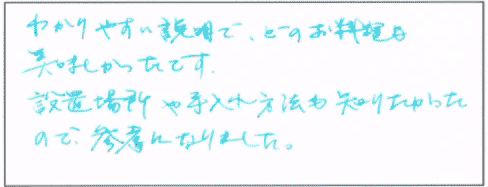 わかりやすい説明で、どのお料理も
美味しかったです。
設置場所や手入れ方法も知りたかった
ので、参考になりました。